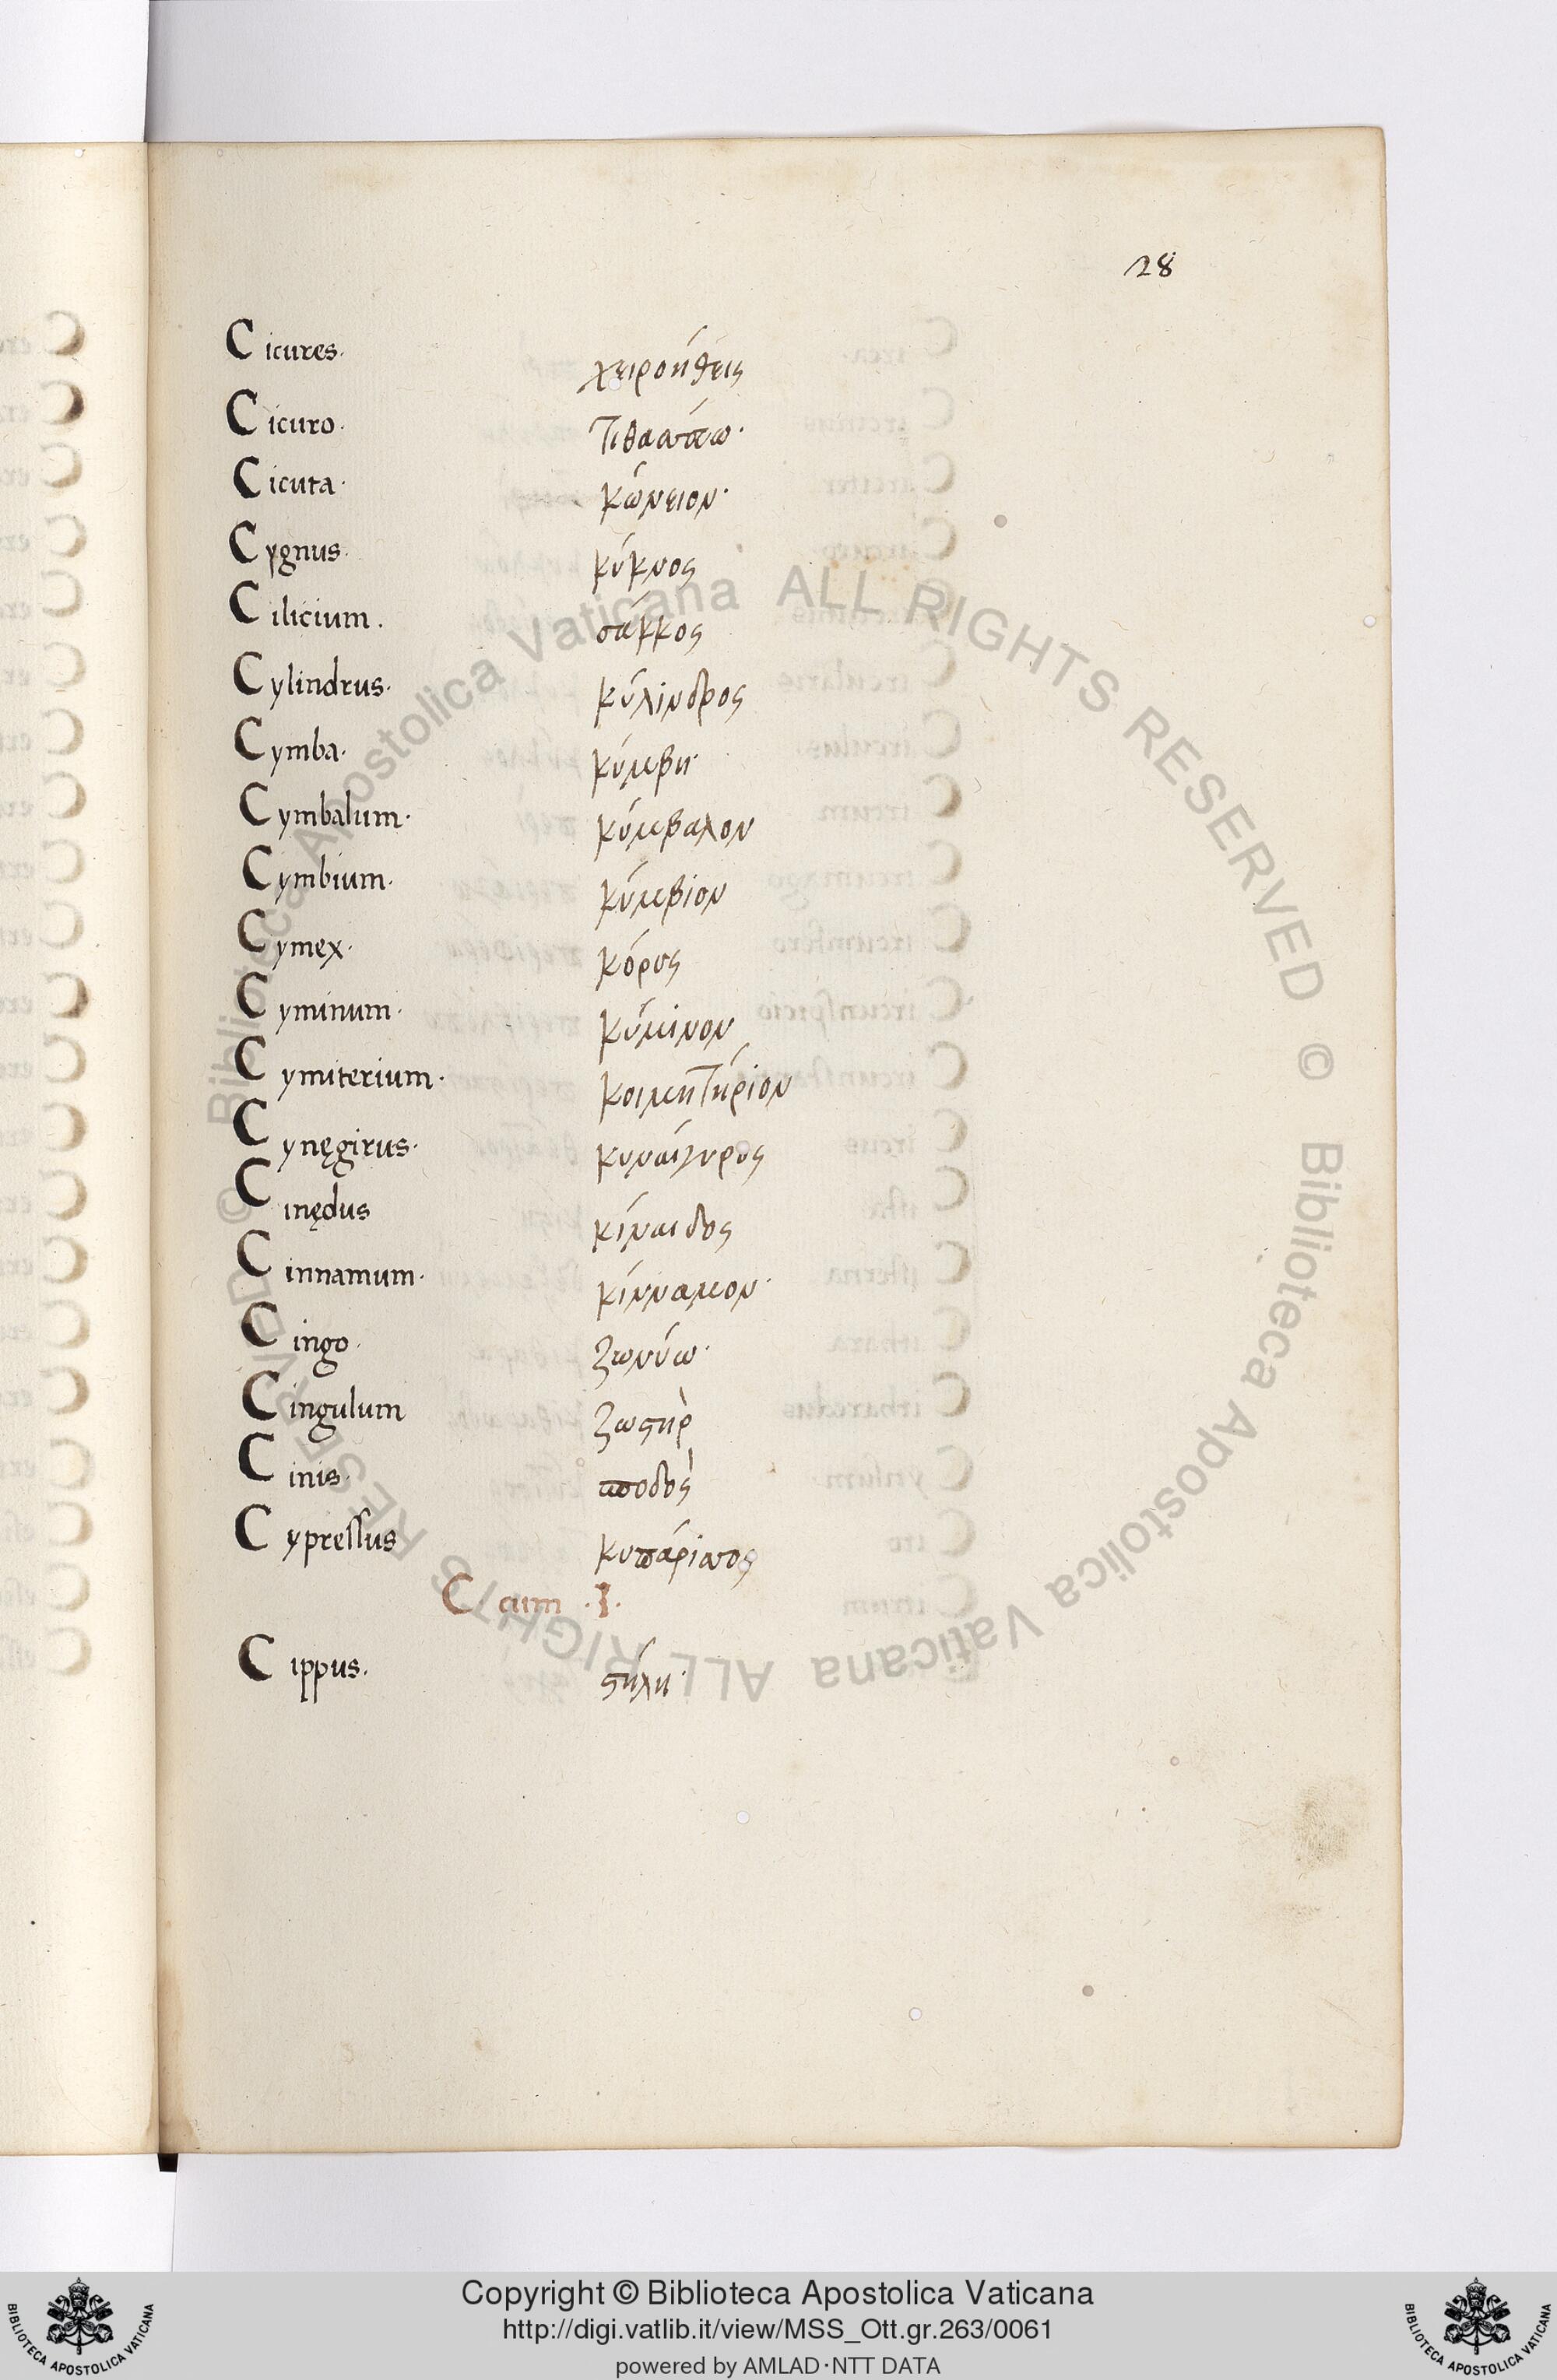 28
Cicures. χειροήθεις
Cicuro. τιθασσω.
Cicuta. κώνειον.
Cygnus. κύκνος
Cilicium. σάκκος
Cylindrus. κύλινδρος
Cymba. κύμβη.
Cymbalum. κύμβαλον
Cymbium. κύμβιον
Cymex. κόρυς
Cyminum. κύμινον
Cymiterium. κοιμητήριον
Cynęgirus. κυναίγυρος
Cinędus κίναιδος
Cinnamum. κίνναμον.
Cingo. ζωνύω.
Cingulum ζωςὴρ
Cinis. σποδὸς
Cypressus κυπάρισσος
C cum .I.
Cippus. ςήλη.
© Biblioteca Apostolica Vaticana ALL RIGHTS RESERVED © Biblioteca Apostolica Vaticana ALL RIGHTS RESERVED
BIBLIOTECA APOSTOLICA VATICANA
Copyright © Biblioteca Apostolica Vaticana
http://digi.vatlib.it/view/MSS_Ott.gr.263/0061
powered by AMLAD·NTT DATA
BIBLIOTECA APOSTOLICA VATICANA